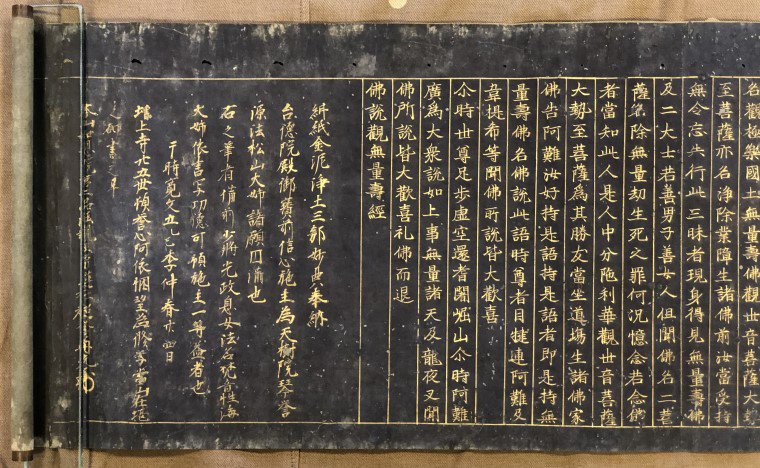 名觀極樂國土無量壽佛觀世音菩薩大勢
至菩薩亦名淨除業障生諸佛前汝當受持
無令忘失行此三昧者現身得見無量壽佛
及二大士若善男子善女人但聞佛名二菩
薩名除無量劫生死之罪何況憶念若念佛
者當知此人是人中分陁利華觀世音菩薩
大勢至菩薩為其勝友當坐道場生諸佛家
佛告阿難汝好持是語持是語者即是持無
量壽佛名佛說此語時尊者目揵連阿難及
韋提布等聞佛所說皆大歡喜
尒時世尊足步虛空還耆闍崛山尒時阿難
廣為大眾說如上事無量諸天及龍夜叉聞
佛所說皆大歡喜礼佛而退
佛說觀無量壽經
紺紙金泥淨土三部妙典奉納
台德院殿御寶前信心施主為天樹院榮譽
源法松山大姉諸願円滿也
右之筆者備前少將光政息女法名
大姉依書字功德可願施主一等益者也
于時寬文五乙巳季仲春廿四日
增上寺廿五世